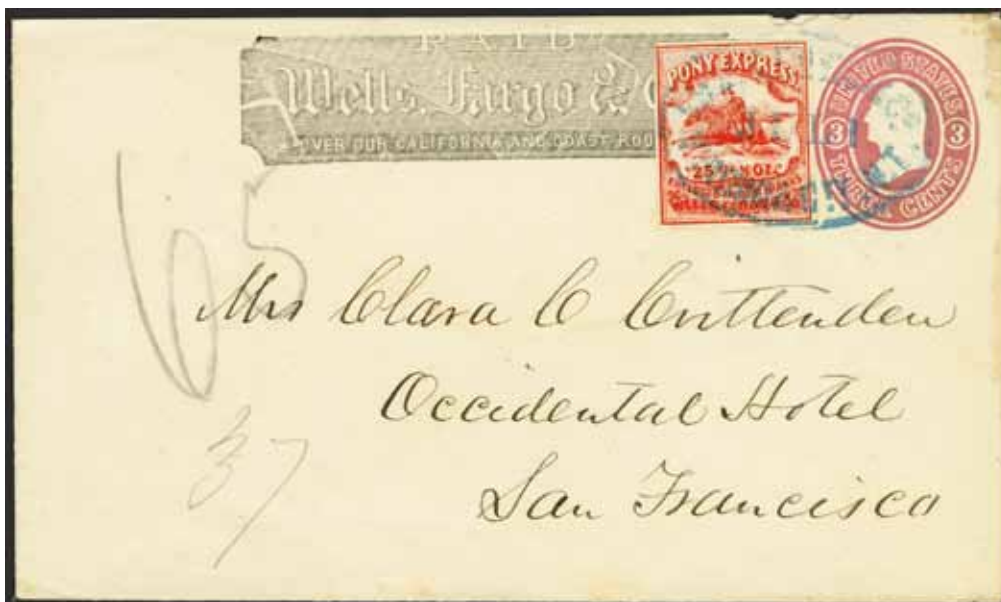 PAID
Wells, Fargo &
OVER OUR CALIFORNIA AND COAST ROU
PONY EXPRESS
25
UNITED STATES
3 3
THREE CENTS
65
Mrs Clara C Crittenden
Occidental Hotel
San Francisco
37